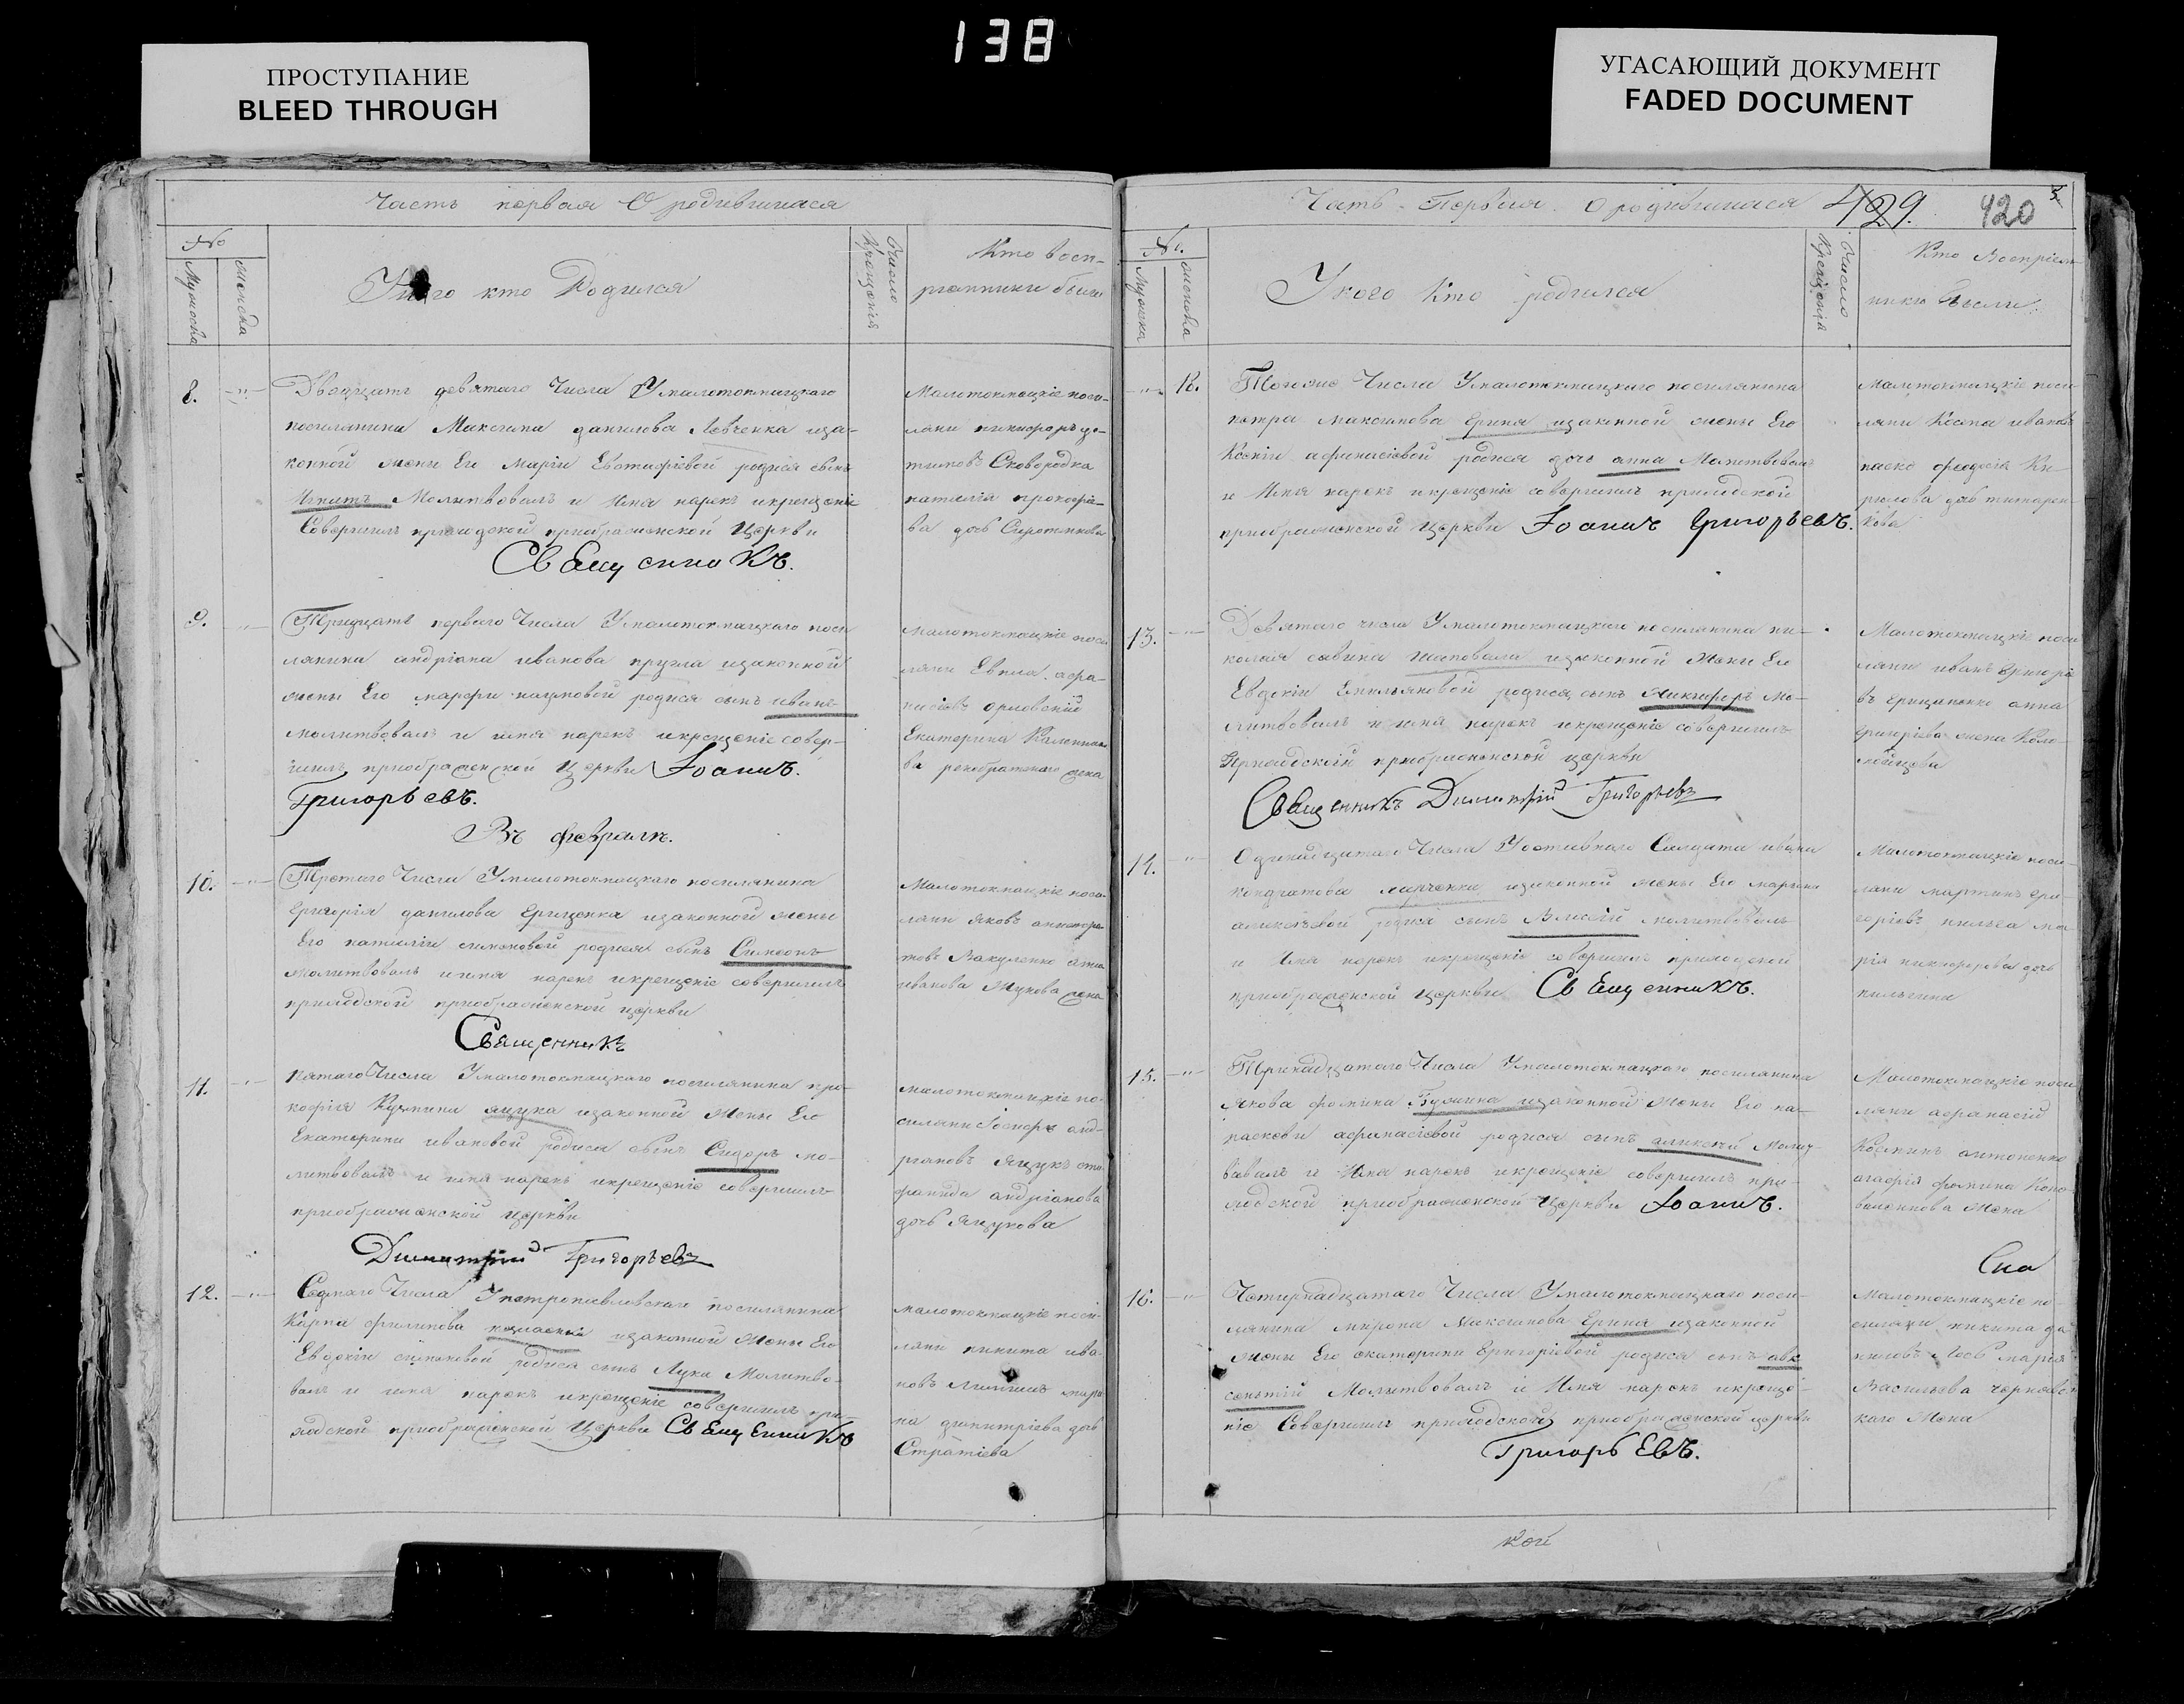 138
ПРОСТУПАНИЕ
BLEED THROUGH
УГАСАЮЩИЙ ДОКУМЕНТ
FADED DOCUMENT
Часть первая О родившихся
№
Мужеска
женска
кто Родился
Число Крещенія
Кто восп-
ріемники были
8.
Двадцать девятаго Числа Умалотокмацкаго
поселянина Максима данилова Левченка иза-
конной жены Его Маріи Евстафіевой родися сынъ
Игнатъ Молитвовалъ и Имя нарекъ икрещеніе
Совершилъ приходской приображенской Церкви
СвЯщенникЪ.
Малотокмацкіе посе-
лани никифоръ
Сковородка
наталія прокофіе-
ва дочь Сиротенкова
9.
Тридцать перваго Числа Умалотокмацкаго посе
лянина андріана иванова пругла изаконной
жены Его марфи наумовой родися сынъ иванъ
молитвовалъ и имя нарекъ икрещеніе совер-
шилъ приображенской Церкви Іоаннъ.
Григорьевъ.
малотокмацкіе посе
ляни Евпла афа-
насіевъ орловскій
Екатерина
ва жена
Въ февралѣ.
10.
Третаго Числа Умалотокмацкаго поселянина
григорія данилова грищенка изаконной жены
Его наталіи симоновой родися сынъ Симеонъ
Молитвовалъ иимя нарекъ икрещеніе совершилъ
приходской приображенской церкви
Священникъ
Малотокмацкіе посе
ляни Яковъ
товъ Вакуленко анна
иванова Жукова жена
11.
пятаго Числа Умалотокмацкаго поселянина про-
кофія Кузмина яцука изаконной Жены Его
Екатерины ивановой родися сынъ Сидоръ мо-
литвовалъ и имя нарекъ икрещеніе совершилъ
приображенской Церкви
Димитрій Григорьевъ
малотокмацкіе по-
селяни Іосифъ анд-
ріановъ Яцукъ сте-
фанида андріанова
дочь Яцукова
12.
Седмаго Числа Упетропавловскаго поселянина
Карпа филипова изаконной Жены Его
Евдокіи родися сынъ Лука Молитво-
валъ и имя нарекъ икрещеніе совершилъ при-
ходской приображенской Церкви СвЯщЕнникЪ
малотокмацкіе посе-
ляни никита ива-
новъ мари
на димитріева дочь
Стратіева
Часть Первая О родившихся 429. 420
№.
Мужеска
женска
Укого Кто родился
Число Крещенія
Кто Воспріем-
ники Были.
12.
Тогоже Числа Умалотокмацкаго поселянина
петра максимова Ерина изаконной жены Его
Ксеніи афанасіевой родися дочь анна Молитвовалъ
и Имя нарекъ икрещеніе совершилъ приходской
приображенской церкви Іоаннъ Григорьевъ.
малотокмацкіе посе
ляни Косма ивановъ
паско феодосія Ки-
рилова дочь
кова
13.
Девятаго числа Умалотокмацкаго поселянина ни-
колая савина шаповала изаконной Жены Его
Евдокіи Емельяновой родися сынъ никифоръ мо-
литвовалъ и имя нарекъ икрещеніе совершилъ
Приходской приображенской церкви
Священникъ Димитрій Григорьевъ
Малотокмацкіе посе
ляни иванъ григоріе
въ грищенко анна
григоріева жена Коло-
мойцова
14.
Одинадцатаго Числа Уоставнаго Салдата ивана
кондратова марченка изаконной жены Его марини
алексѣевой родися сынъ Алексій молитвовалъ
и Имя нарекъ икрещеніе совершилъ приходской
приображенской церкви СвЯщенникЪ.
Малотокмацкіе посе-
ляни мартинъ гри-
горіевъ ма
рія никифорова дочь
15.
Тринадцатаго Числа Умалотокмацкаго поселянина
Якова фомина изаконной Жены Его па-
раскеви афанасіевой родися сынъ алексѣй Молит-
вовалъ и Имя нарекъ икрещеніе совершилъ при-
ходской приображенской Церкви Іоаннъ.
Малотокмацкіе посе
ляни афанасій
Козминъ антоненко
агафія фомина Коно-
валенкова Жена
16.
Четирнадцатаго Числа Умалотокмацкаго посе-
лянина мирона Максимова Ерина изаконной
жены Его екатерины григоріевой родися сынъ авк
сентій Молитвовалъ и Имя нарекъ икреще-
ніе Совершилъ приходской приображенской церкви
ГригорьЕвЪ.
Малотокмацкіе по-
селяни никита да
ниловъ Лобъ марія
Васильева
каго Жена
кой